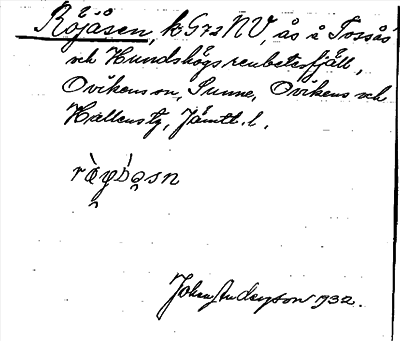 Röjåsen, k Grs NV, ås å Tossås
och Hundshögs renbetesfjäll,
Ovikens sn, Sunne, Ovikens och
Hallens tg, Jämtl. l.
John Anderson 1932.